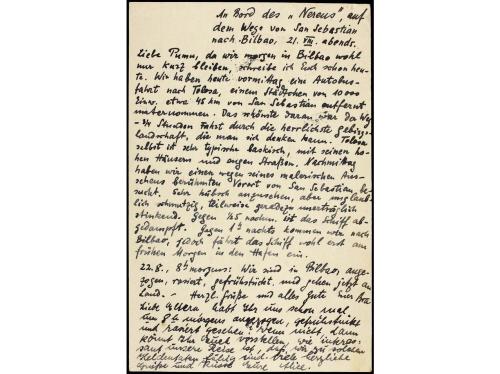 An Bord des „Nereus", auf
dem Wege von San Sebastian
nach Bilbao, 21. VIII. abends.
Liebe Pumu, da wir morgen in Bilbao wohl
nur kurz bleiben, schreibe ich Euch schon heu-
te. Wir haben heute vormittag eine Autobus-
fahrt nach Tolosa, einem Städtchen von 10 000
Einw. etwa 45 km von San Sebastian entfernt
unternommen. Das schönste daran war der Weg
Stunden Fahrt durch die herrlichste Gebirgs-
landschaft, die man sich denken kann. Tolosa
selbst ist sehr typische baskisch, mit seinen ho-
hen Häusern und engen Straßen, Nachmittag
haben wir einen wegen seines malerischen Aus-
sehens berühmten Vorort von San Sebastian be-
sucht. Sehr hübsch anzusehen, aber unglaub-
lich schmutzig, teilweise geradezu unerträglich
stinkend. Gegen ½5 nachm. ist das Schiff ab-
gedampft. Gegen 1h nachts kommen wir nach
Bilbao, jedoch fährt das Schiff wohl erst am
frühen Morgen in den Hafen ein.
22.8., 8h morgens: Wir sind in Bilbao, ange-
zogen, rasiert, gefrühstückt, und gehen jetzt an
Land. – Herzl. Grüße und alles Gute
Liebe Eltern habt Ihr uns schon mal
um 8h morgens angezogen, gefrühstückt
und rasiert gesehen? Wenn nicht, dann
könnt Ihr Euch vorstellen, wie interes-
sant unsere Reise ist, daß wir zu solchen
Heldentaten fähig sind. Viele herzliche
Grüße und Küsse Eure Alice.